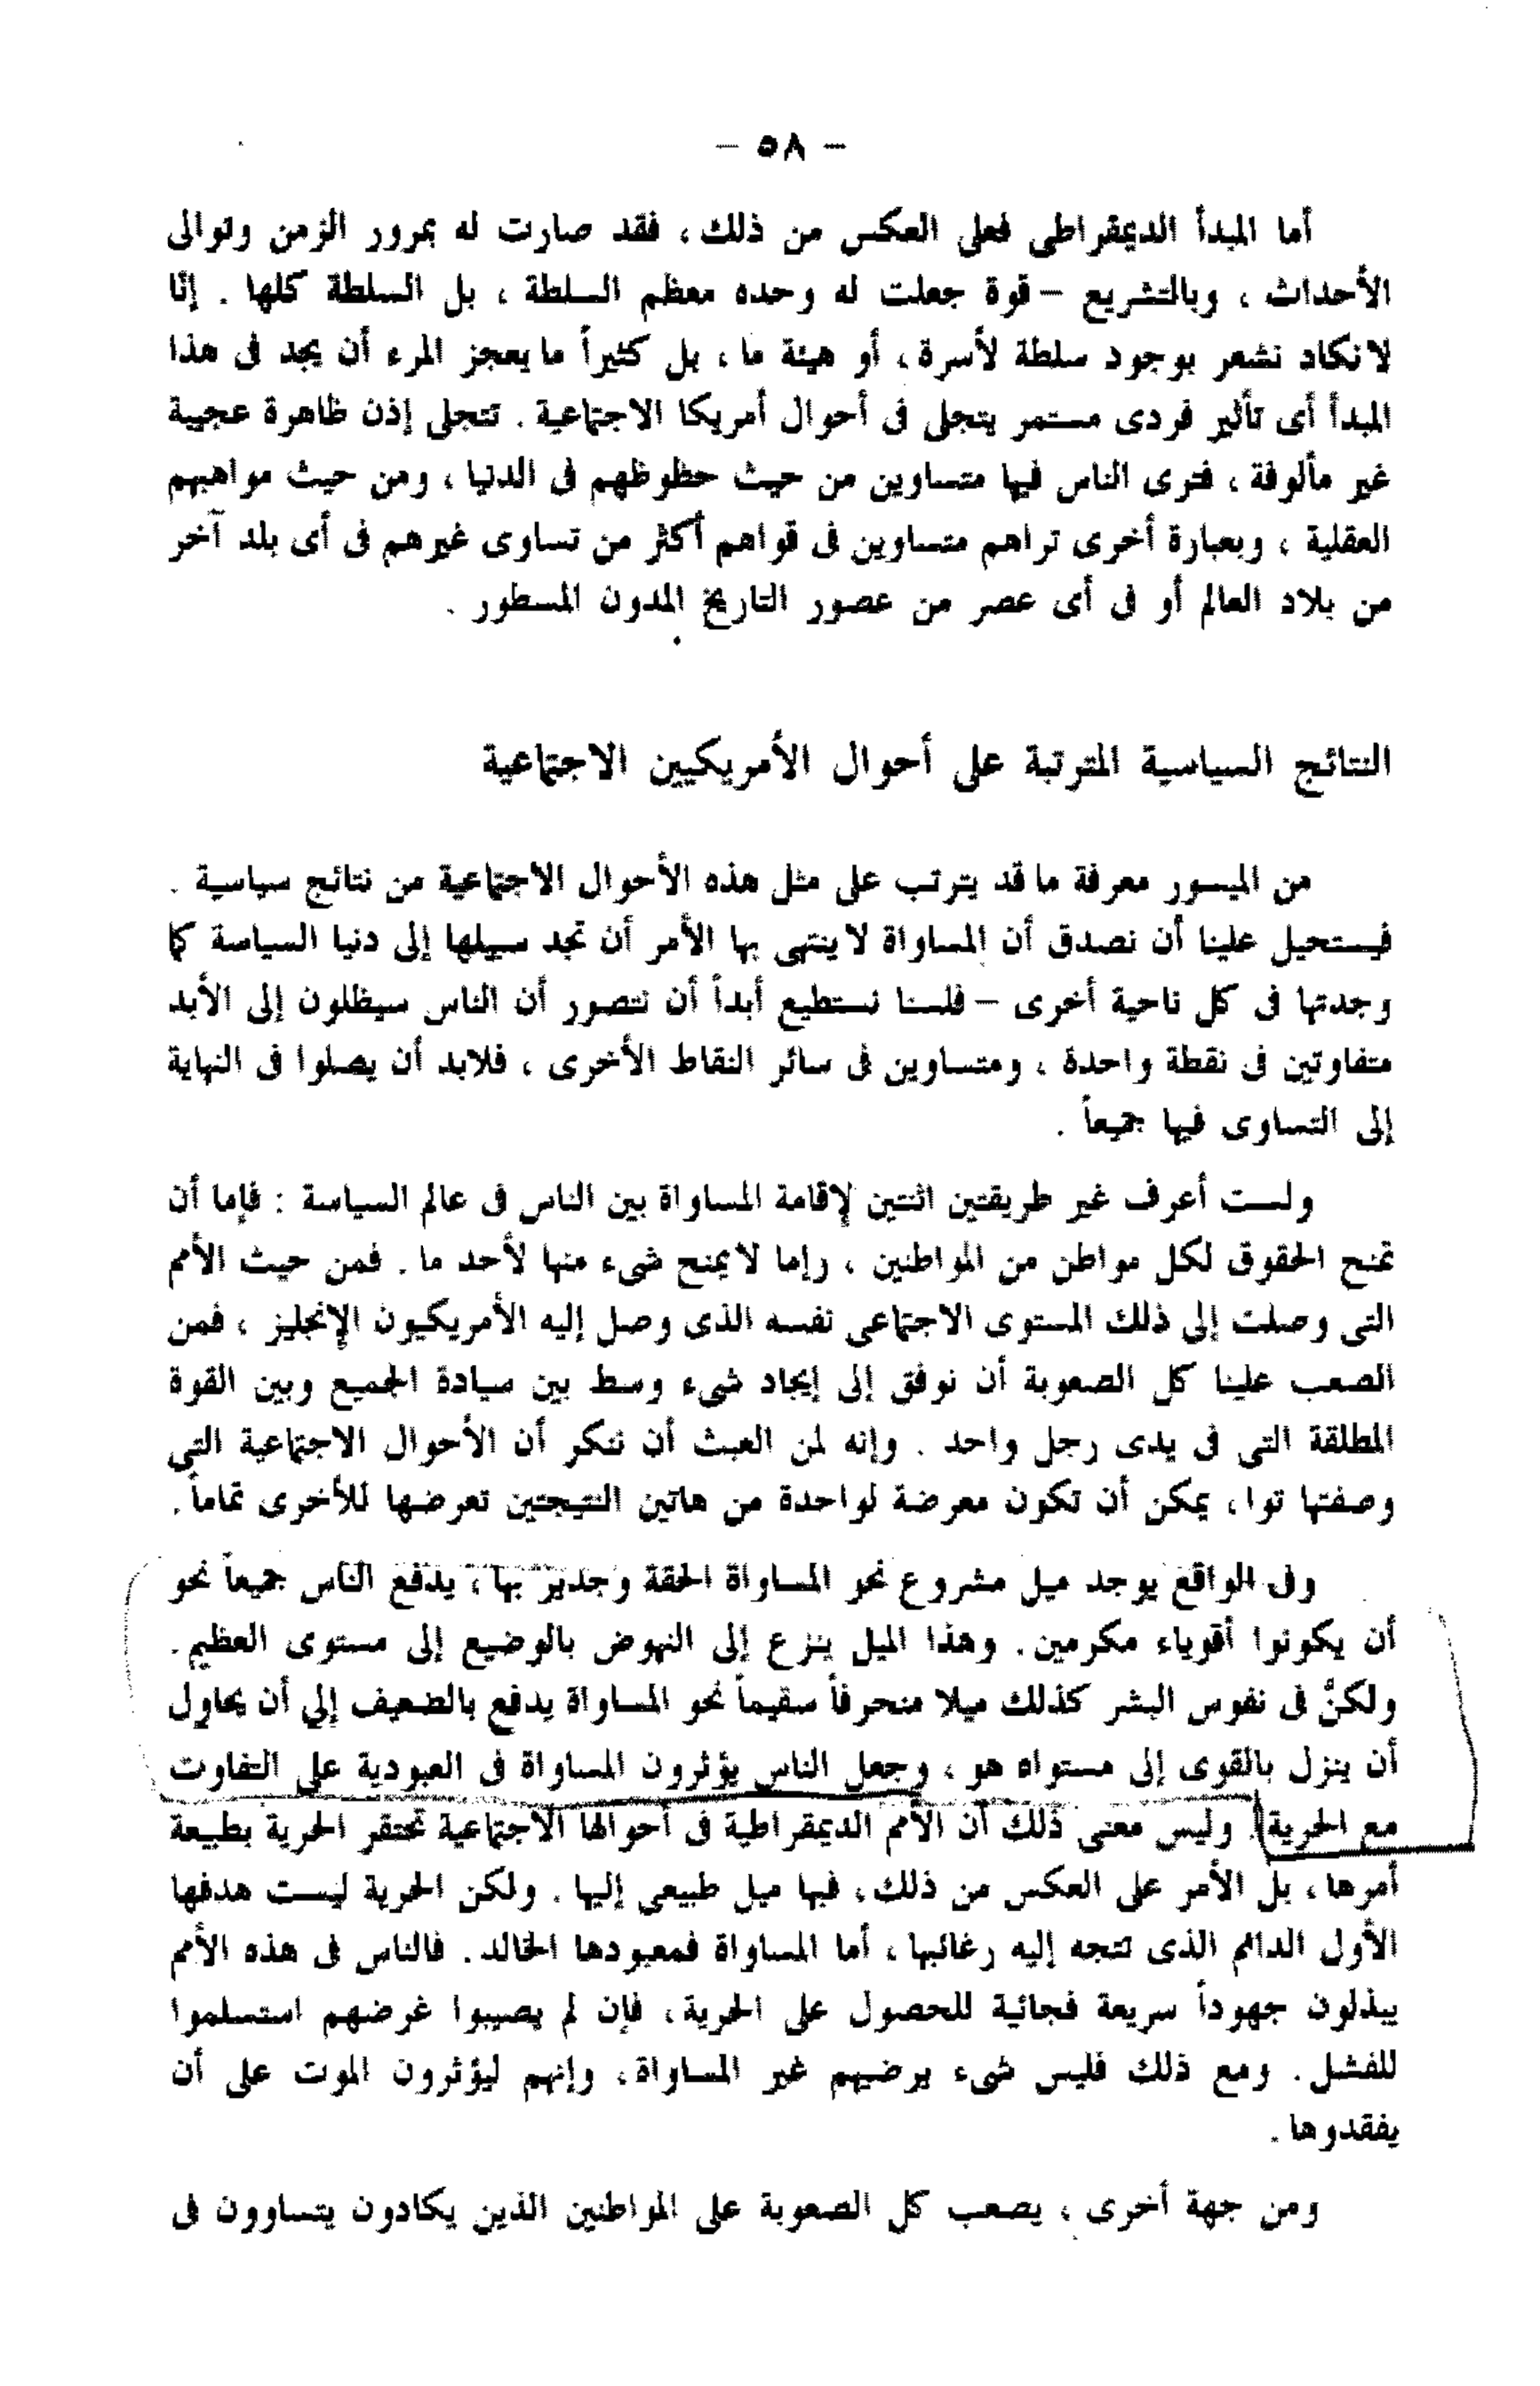 – ٥٨ –
أما المبدأ الديمقراطى فعلى العكس من ذلك ، فقد صارت له بمرور الزمن وتوالى
الأحداث ، وبالتشريع – قوة جعلت له وحده معظم السلطة ، بل السلطة كلها . إنا
لا نكاد نشعر بوجود سلطة لأسرة ، أو هيئة ما ، بل كثيراً ما يعجز المرء أن يجد فى هذا
المبدأ أى تأثير فردى مستمر يتجلى فى أحوال أمريكا الاجتماعية . تتجلى إذن ظاهرة عجيبة
غير مألوفة ، فترى الناس فيها متساوين من حيث حظوظهم فى الدنيا ، ومن حيث مواهبهم
العقلية ، وبعبارة أخرى تراهم متساوين فى قواهم أكثر من تساوى غيرهم فى أى بلد آخر
من بلاد العالم أو فى أى عصر من عصور التاريخ المدون المسطور .
النتائج السياسية المترتبة على أحوال الأمريكيين الاجتماعية
من الميسور معرفة ما قد يترتب على مثل هذه الأحوال الاجتماعية من نتائج سياسية .
فيستحيل علينا أن نصدق أن المساواة لا ينتهى بها الأمر أن تجد سبيلها إلى دنيا السياسة كما
وجدتها فى كل ناحية أخرى – فلسنا نستطيع أبداً أن نتصور أن الناس سيظلون إلى الأبد
متفاوتين فى نقطة واحدة ، ومتساوين فى سائر النقاط الأخرى ، فلابد أن يصلوا فى النهاية
إلى التساوى فيها جميعاً .
ولست أعرف غير طريقتين اثنتين لإقامة المساواة بين الناس فى عالم السياسة : فإما أن
تمنح الحقوق لكل مواطن من المواطنين ، وإما لا يمنح شىء منها لأحد ما . فمن حيث الأمم
التى وصلت إلى ذلك المستوى الاجتماعى نفسه الذى وصل إليه الأمريكيون الإنجليز ، فمن
الصعب علينا كل الصعوبة أن نوفق إلى إيجاد شىء وسط بين سيادة الجميع وبين القوة
المطلقة التى فى يدى رجل واحد . وإنه لمن العبث أن ننكر أن الأحوال الاجتماعية التى
وصفتها توا ، يمكن أن تكون معرضة لواحدة من هاتين النتيجتين تعرضها للأخرى تماماً .
وفى الواقع يوجد ميل مشروع نحو المساواة الحقة وجدير بها ، يدفع الناس جميعاً نحو
أن يكونوا أقوياء مكرمين . وهذا الميل ينزع إلى النهوض بالوضيع إلى مستوى العظيم .
ولكنَّ فى نفوس البشر كذلك ميلا منحرفاً سقيماً نحو المساواة يدفع بالضعيف إلى أن يحاول
أن ينزل بالقوى إلى مستواه هو ، وجعل الناس يؤثرون المساواة فى العبودية على التفاوت
مع الحرية . وليس معنى ذلك أن الأمم الديمقراطية فى أحوالها الاجتماعية تحتقر الحرية بطبيعة
أمرها ، بل الأمر على العكس من ذلك ، فبها ميل طبيعى إليها . ولكن الحرية ليست هدفها
الأول الدائم الذى تتجه إليه رغائبها ، أما المساواة فمعبودها الخالد . فالناس فى هذه الأمم
يبذلون جهوداً سريعة فجائية للحصول على الحرية ، فإن لم يصيبوا غرضهم استسلموا
للفشل . ومع ذلك فليس شىء يرضيهم غير المساواة ، وإنهم ليؤثرون الموت على أن
يفقدوها .
ومن جهة أخرى ، يصعب كل الصعوبة على المواطنين الذين يكادون يتساوون فى